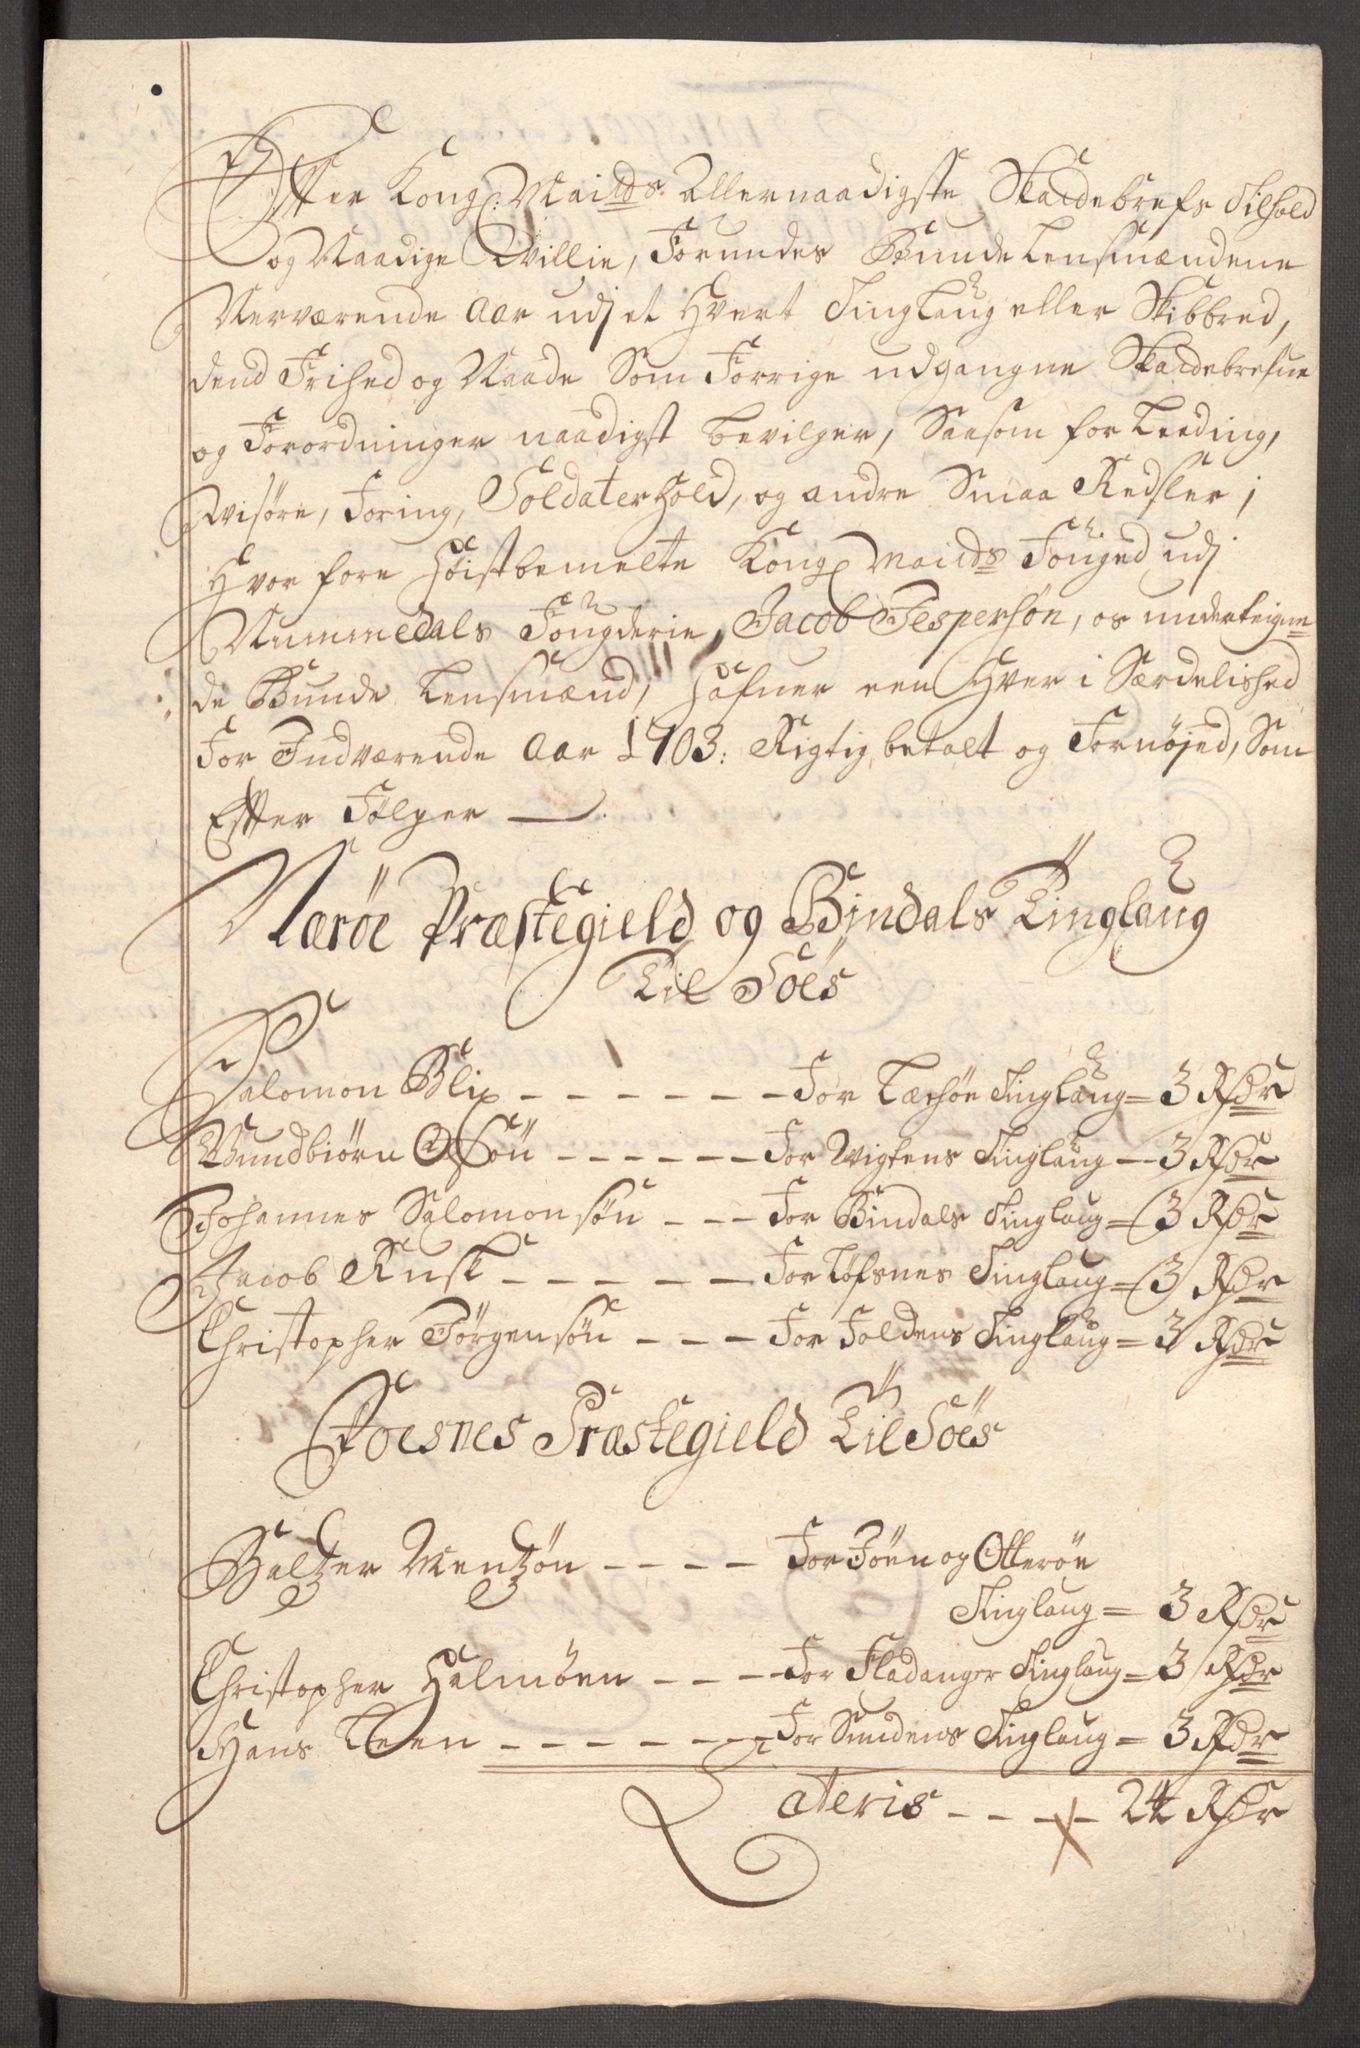 Effter Kongl: Maitds: Allernaadigste Skattebrefs Tilhold
og Naadige Willie, Forundes Bunde Lensmændene
Nerværende Aar udj et Hvert Tinglaug eller Skibbred,
dend Frihed og Naade Som Forrige udgangne Skattebrefue
og Forordninger naadigst bevilger, Saasom for Leeding,
Wisøre, Foring, Soldaterhold, og andre Smaa Redsler,
Hvor fore Høistbemelte Kongl Maitds Fouged udj
Nummedals Fougderie, Jacob Jespersøn, os underteigne=
de Bunde Lensmænd, Hafuer een Hver i Særdelished
for Indværende Aar 1703: Rigtig betalt og Fornøjed, Som
Effter Følger
Nærøe Præstegield og Bindals Tinglaug
Til Søes
Salomon Blix - - - - - - For Lechøe Tinglaug = 3 Rdr
Gundbiørn Olsøn - - - - - - For Wigtens Tinglaug - 3 Rdr
Johannes Salomonsøn - - - For Bindals Tinglaug = 3 Rdr
Jacob Rusk - - - - - For Løfsnes Tinglaug = 3 Rdr
Christopher Jørgensøn - - - For Foldens Tinglaug = 3 Rdr
Foesnes Præstegield Til Søes
Baltzer Mentzøn - - - - For Jøen og Otterøe
Tinglaug = 3 Rdr
Christopher Halmøen - - - For Fladanger Tinglaug = 3 Rdr
Hans Leen - - - - - - For Sundens Tinglaug = 3 Rdr
Lateris - - - - 24 Rdr